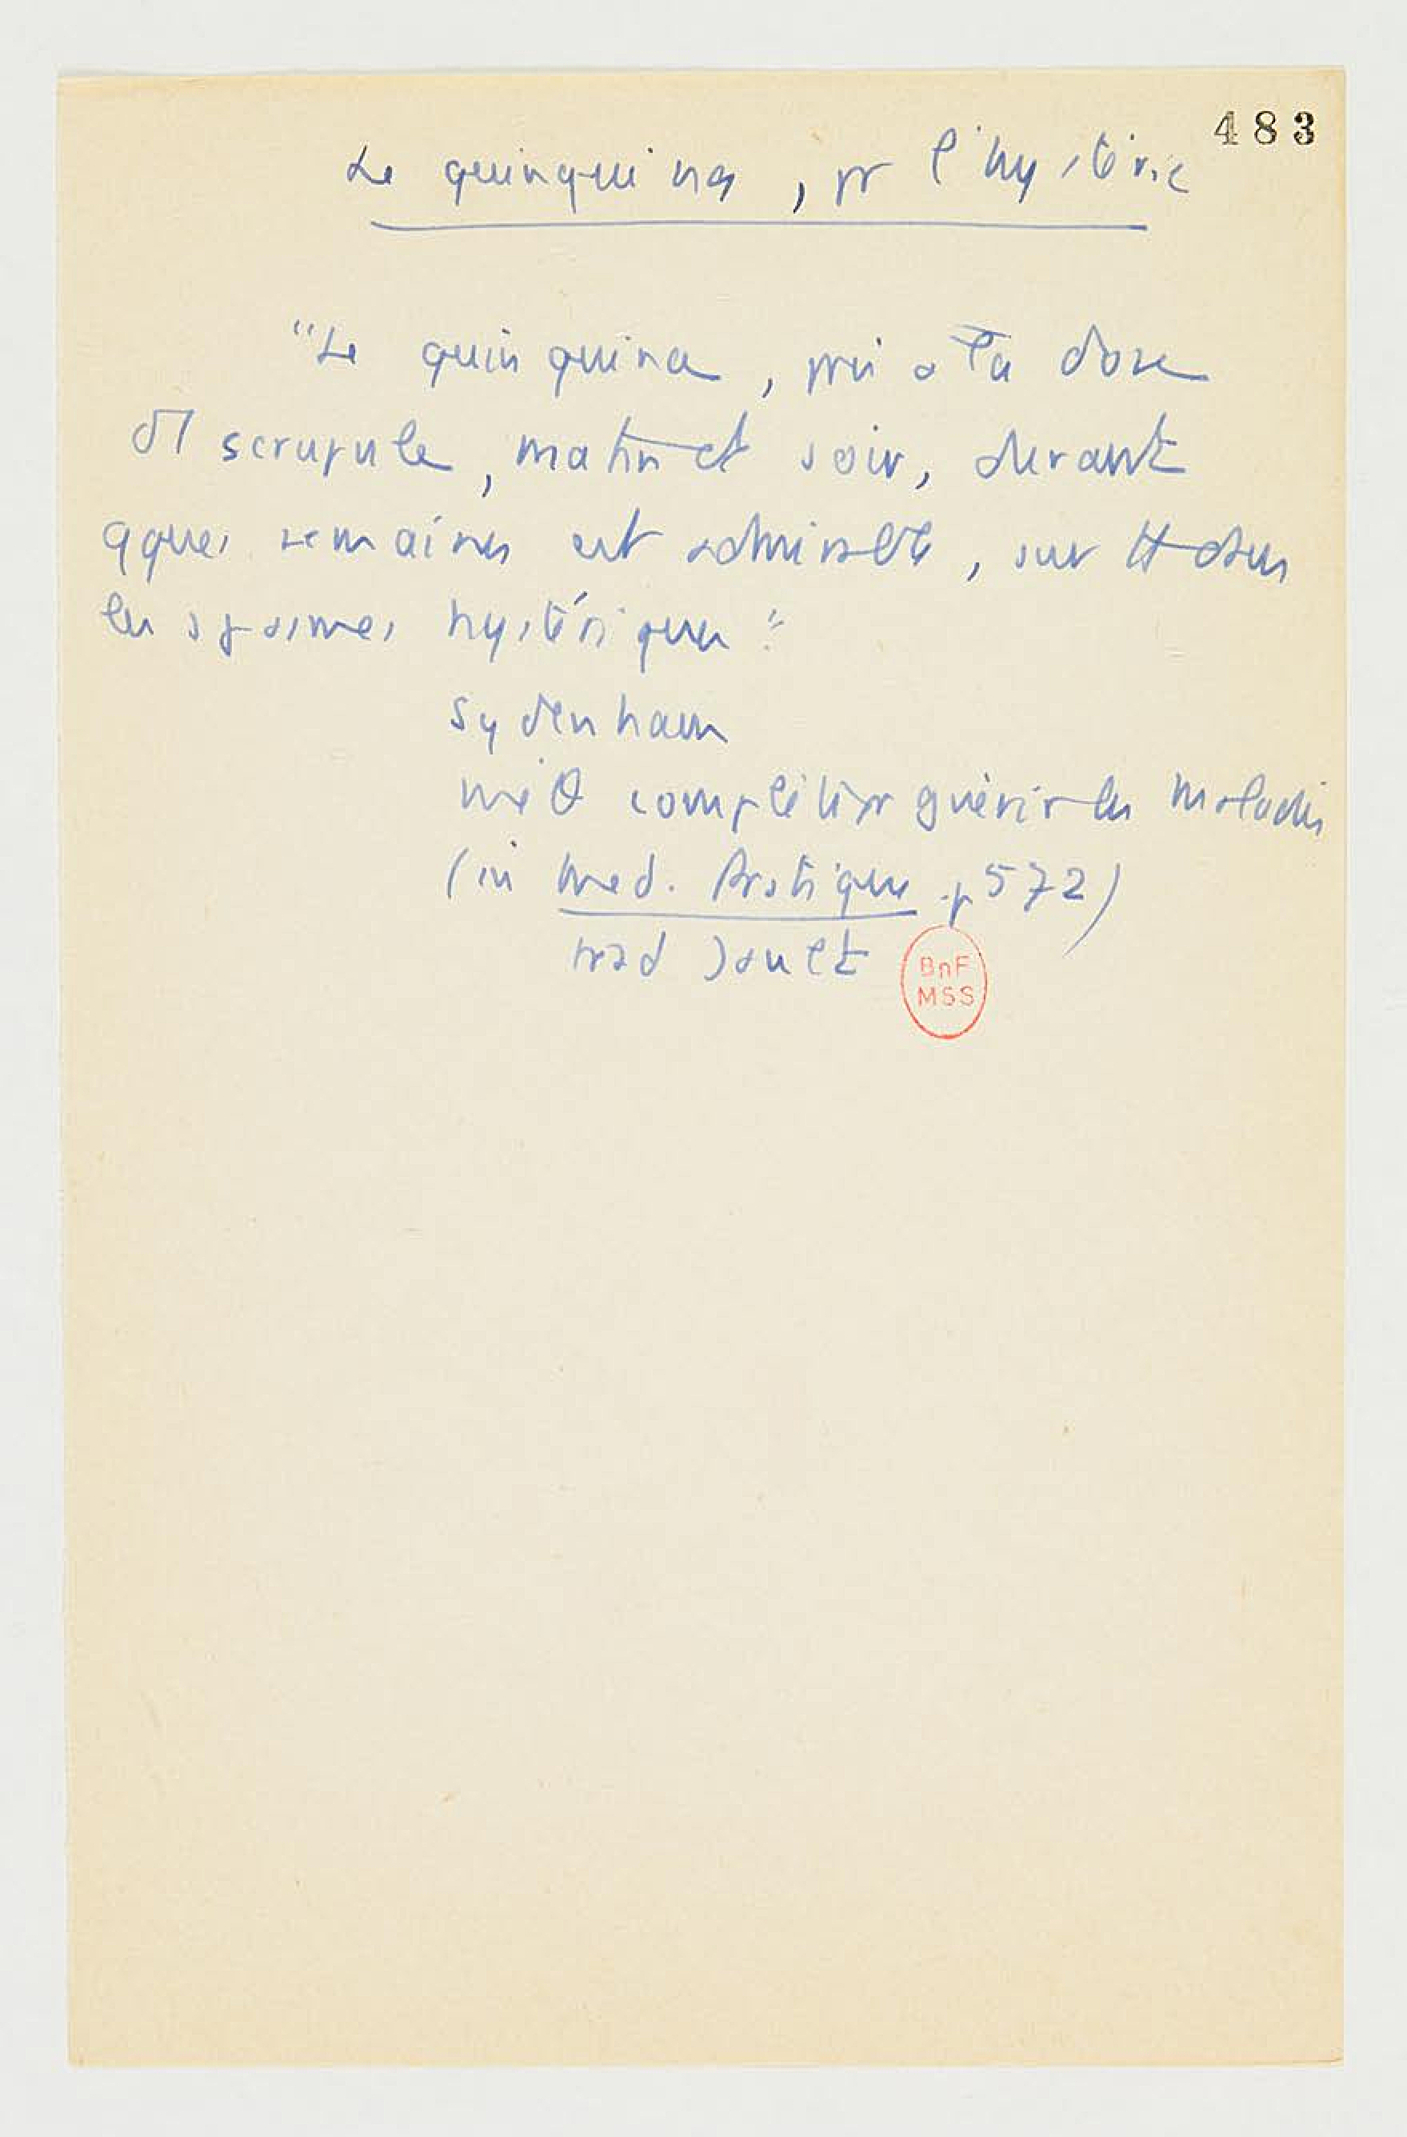 483
Le quinquina, pr l'hystérie
"Le quinquina, pris à la dose
d'1 scrupule, matin et soir, durant
qques semaines est admirable, sur tt dans
les spasmes hystériques"
Sydenham
méθ complète pr guérir les maladies
(in Med. Pratique p 572)
trad Jault
BnF
MSS